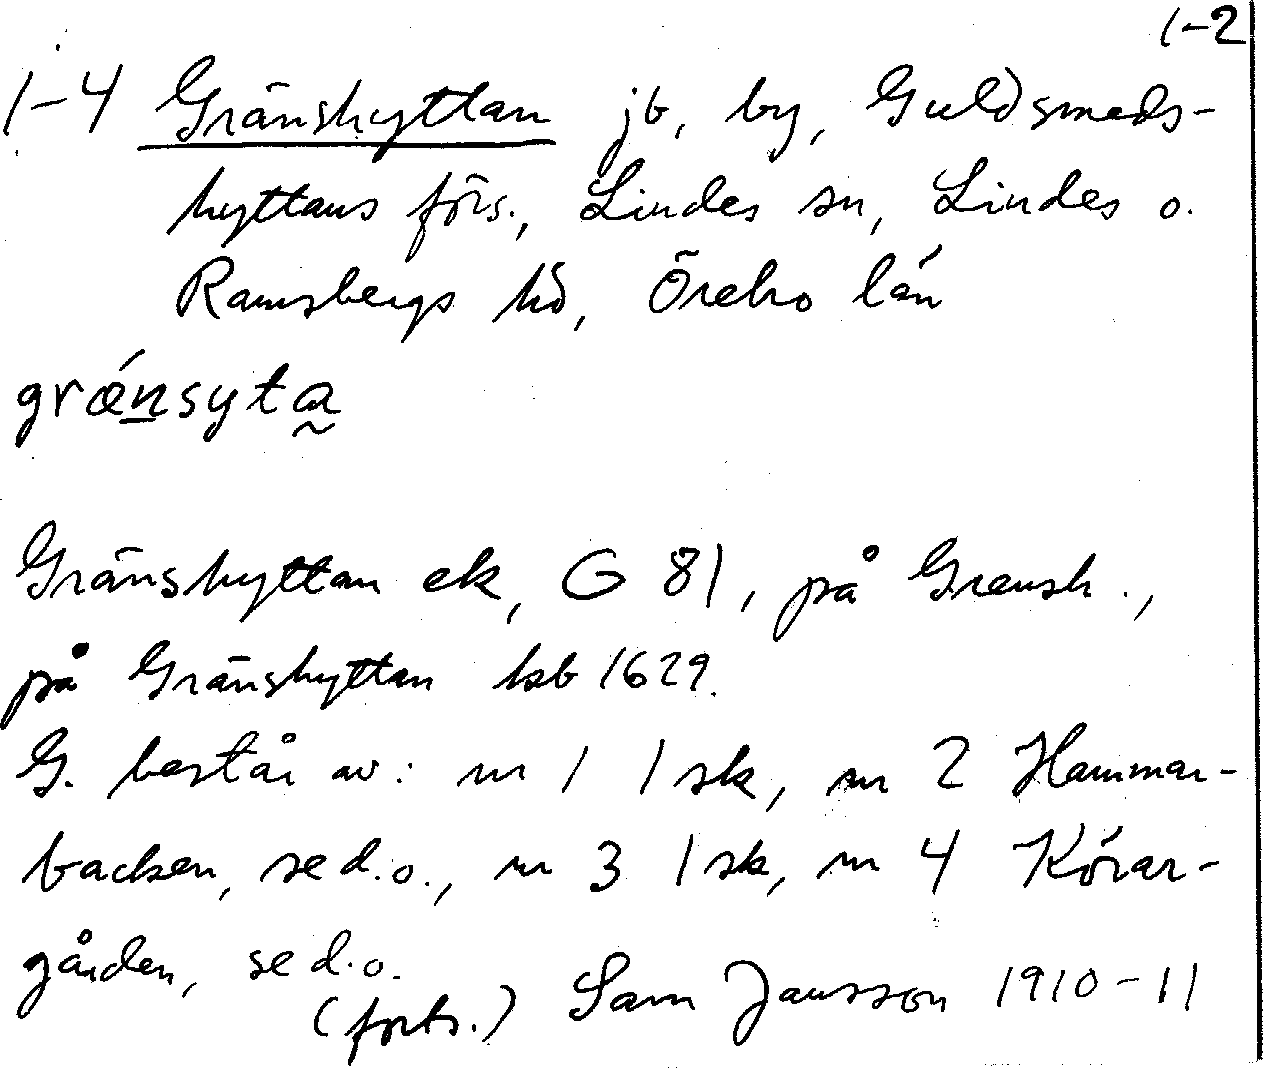 1-2
1-4 Gränshyttan jb, by, Guldsmeds-
hyttans förs., Lindes sn, Lindes o.
Ramsbergs hd, Örebro län
grǽnsyta̰
Gränshyttan ek, G 81, på Grensh.,
på Gränshyttan ksb 1629.
G. består av: nr 1 1 sk, nr 2 Hammar-
backen, se d.o., nr 3 1 sk, nr 4 Körar-
gården, se d.o.
(forts.) Sam Jansson 1910-11